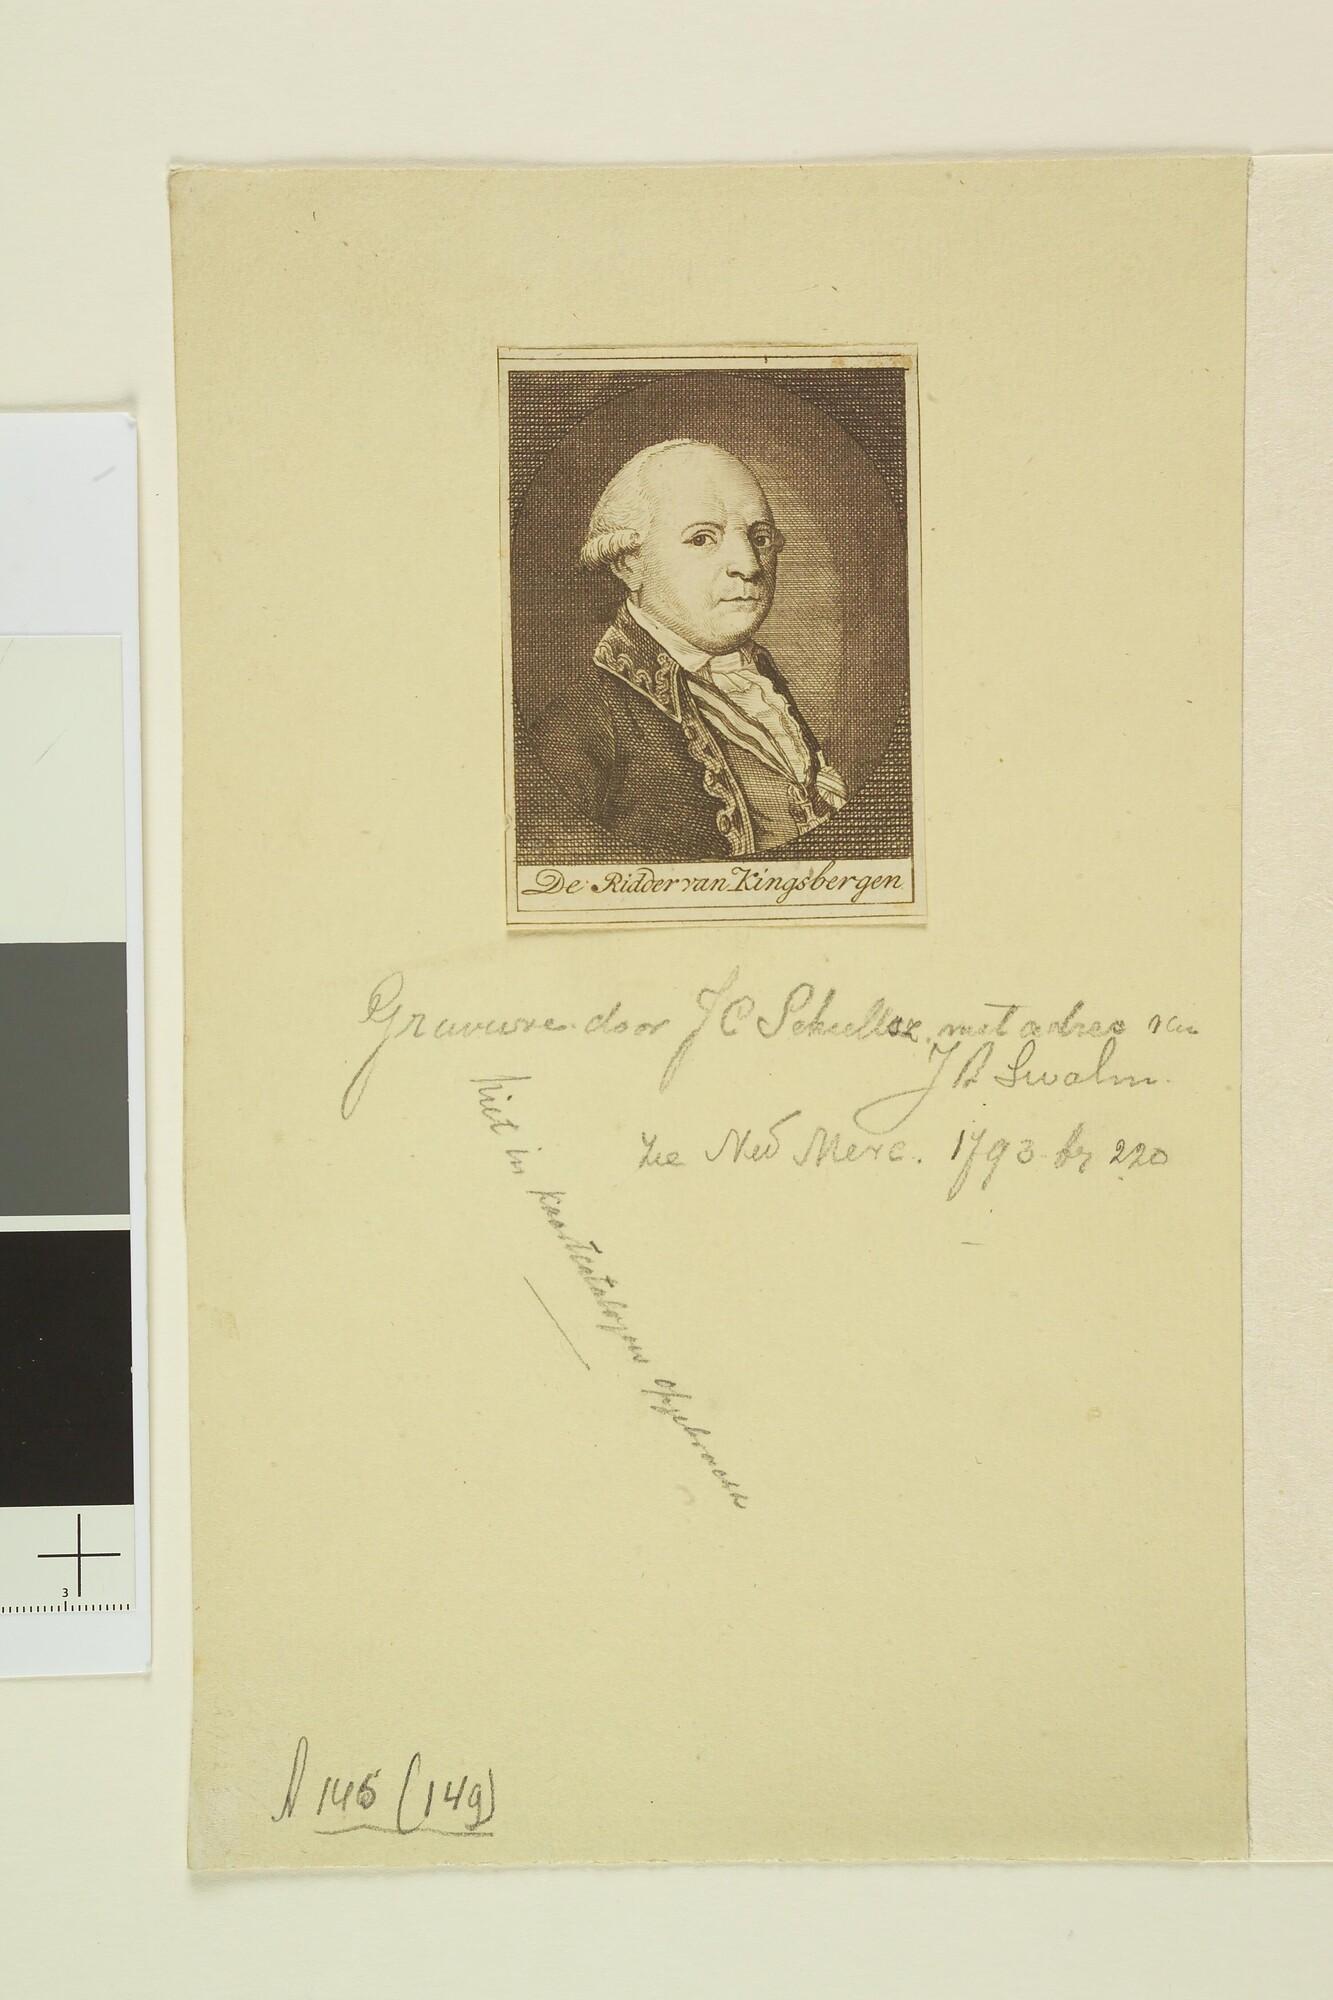 De Ridder van Kingsbergen
Gravure door J C Schultsz. met adres van
J A Swalm.
zie Ned Merc. 1793 bz 220
niet in kaartcatalogus opgebracht
A 145 (149)
3